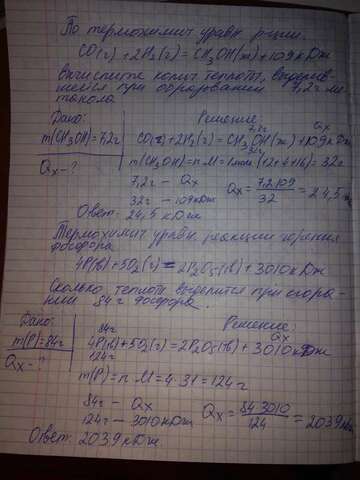 По термохимич уравн р-ции.
CO(г)+2H₂(г)=CH₃OH(ж)+109кДж
вычислите колич теплоты, выделив-
шейся при образовании 7,2г ме
танола
Дано:
m(CH₃OH)=7,2г
Qx-?
Решение:
7,2г Qx
CO(г)+2H₂(г)=CH₃OH(ж)+109кДж
32г
m(CH₃OH)=n·M=1моль·(12+4+16)=32г
7,2г - Qx
32г - 109кДж
Qx=7,2·109/32=24,5кДж
Ответ: 24,5 кДж
Термохимич уравн реакции горения
фосфора
4P(тв)+5O₂(г)=2P₂O₅(тв)+3010кДж
Сколько теплоты выделится при сгора-
нии 84г фосфора.
Дано:
m(P)=84г
Qx-?
Решение:
84г Qx
4P(тв)+5O₂(г)=2P₂O₅(тв)+3010кДж
124г
m(P)=n·M=4·31=124г
84г - Qx
124г - 3010кДж
Qx=84·3010/124=2039кДж
Ответ: 2039кДж